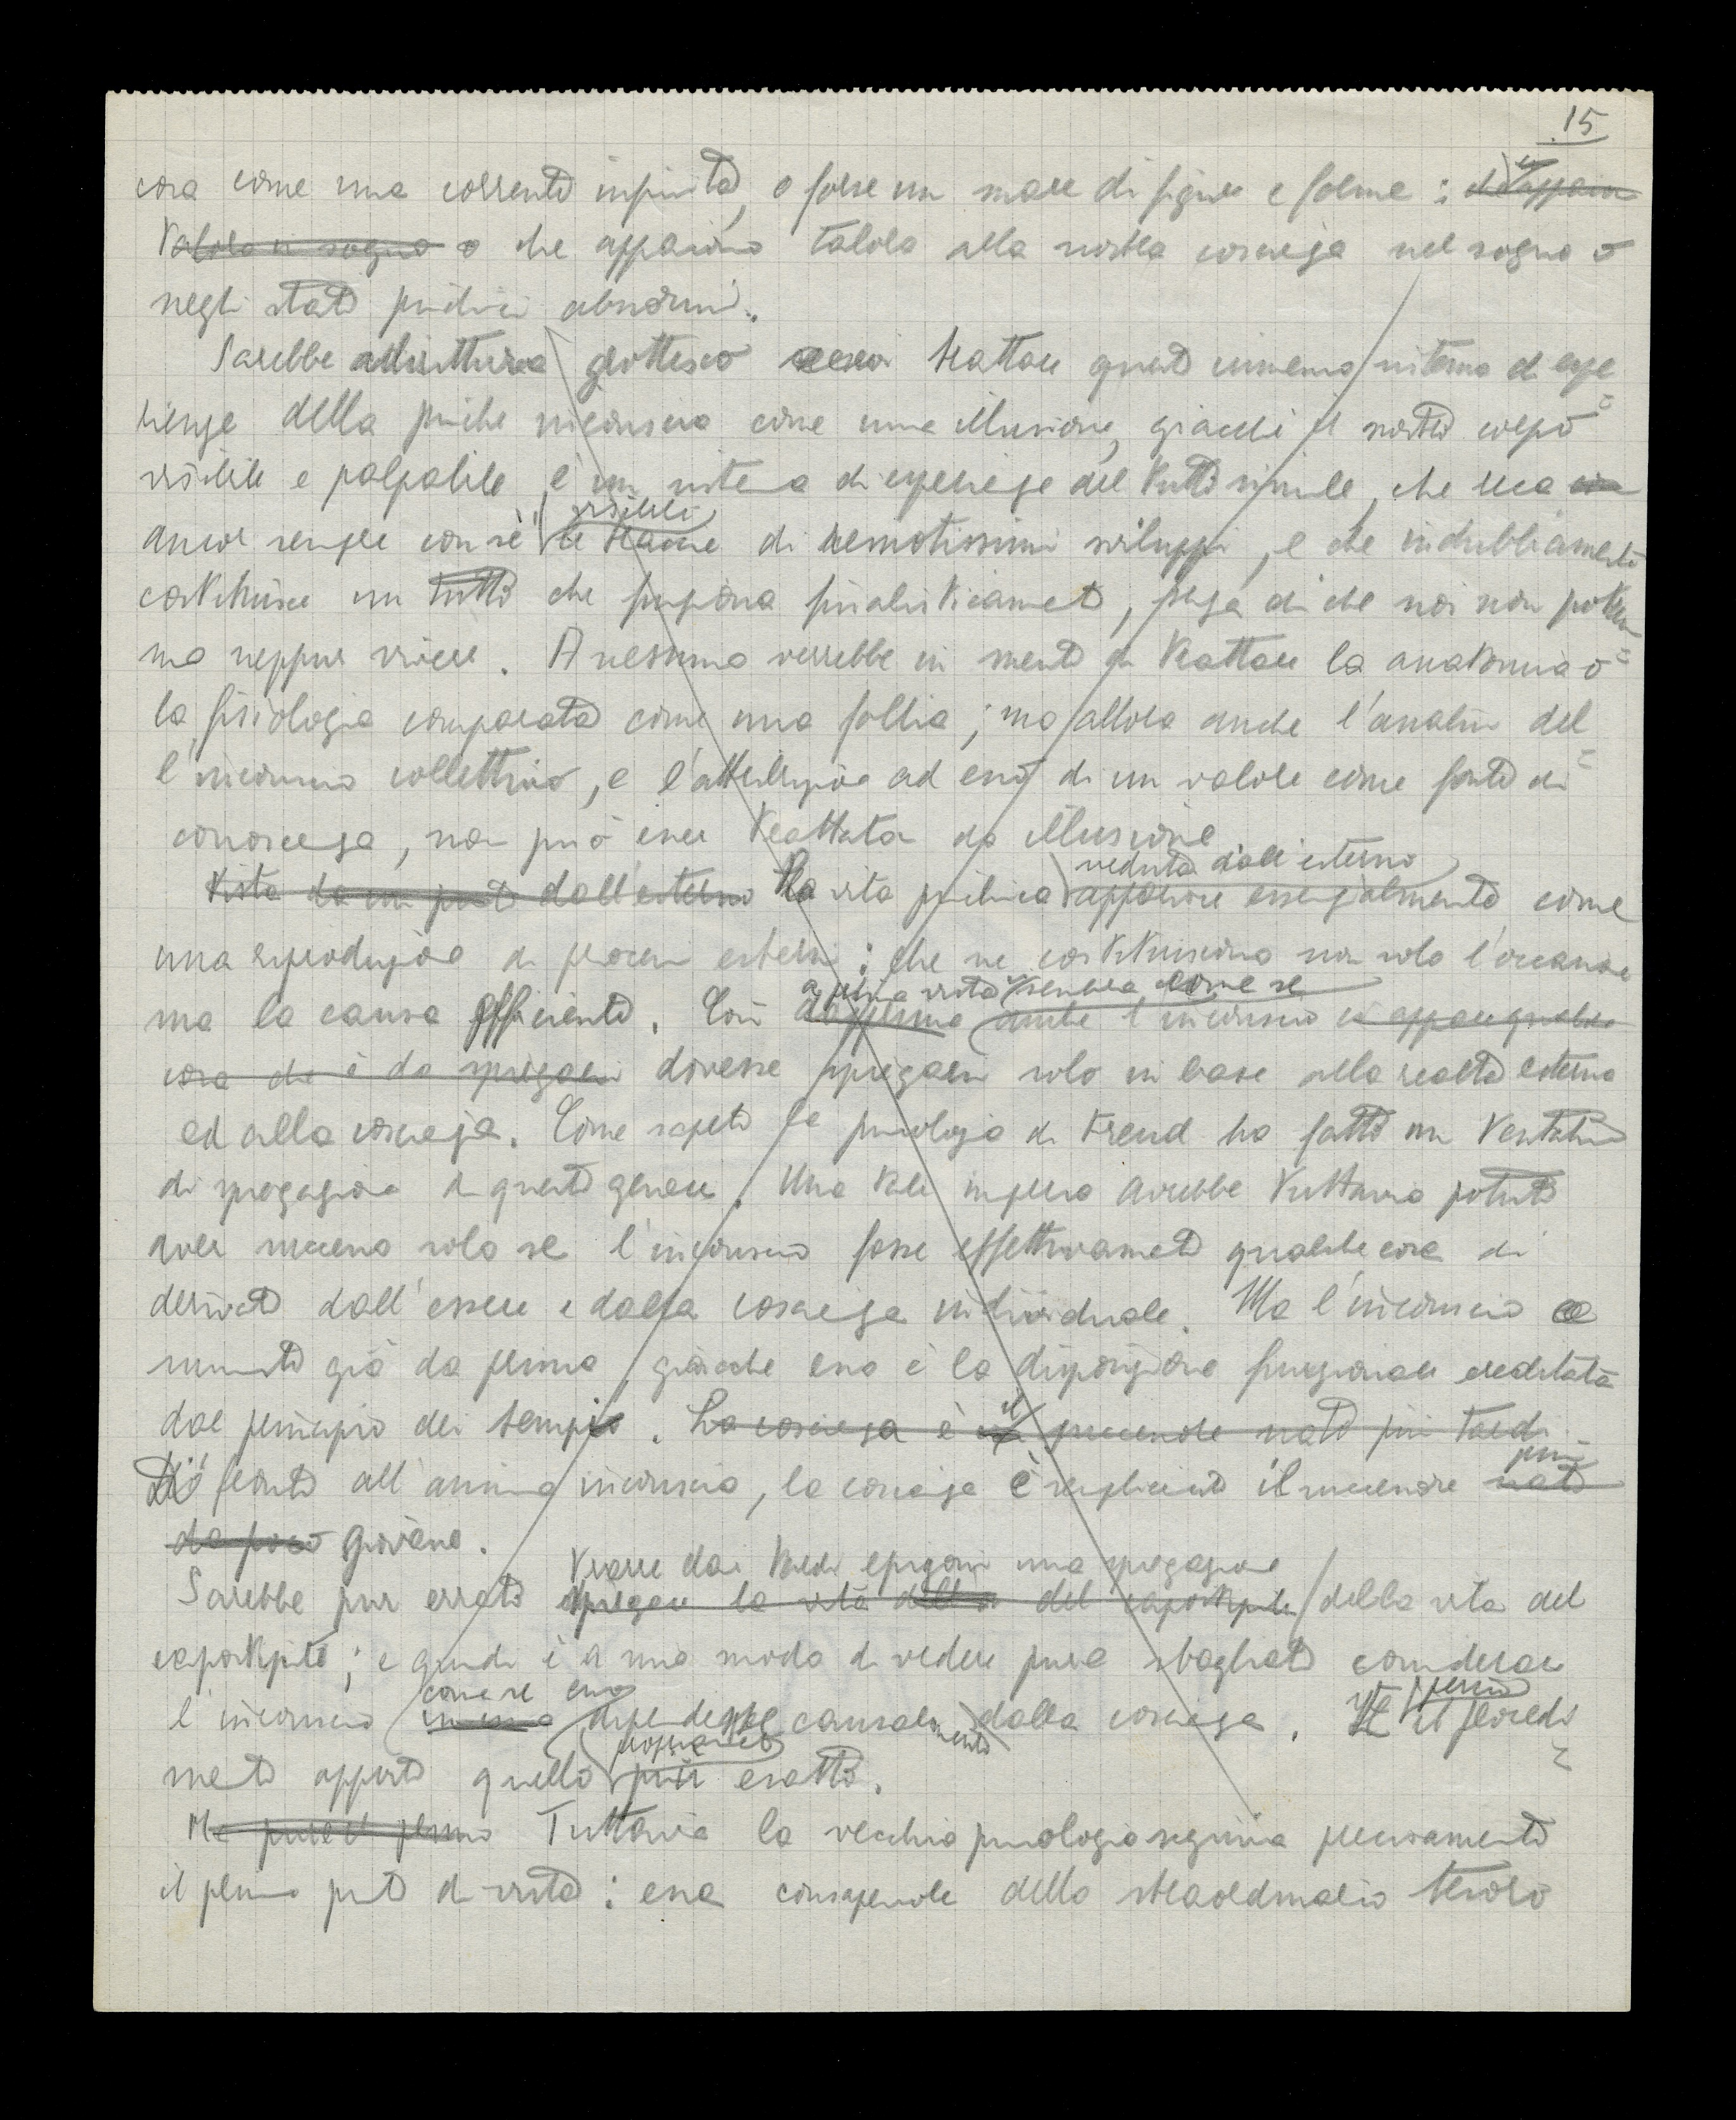 15
cosa come una corrente infinita, o forse un mare di figure e forme :
talora in sogno o che appaiono talora alla nostra coscienza nel sogno o
negli stati psichici abnormi.
Sarebbe addirittura grottesco trattare questo immenso sistema di espe=
rienze della psiche inconscia come una illusione, giacchè il nostro corpo
visibile e palpabile è un sistema di esperienze del tutto simile, che reca
visibili
ancor sempre con sè le tracce di remotissimi sviluppi, e che indubbiamente
costituisce un tutto che funziona finalisticamente, senza di che noi non potrem=
mo neppur vivere. A nessuno verrebbe in mente di trattare la anatomia o
la fisiologia comparata come una follia ; ma allora anche l'analisi del=
l'inconscio collettivo, e l'attribuzione ad esso di un valore come fonte di
conoscenza, non può esser trattata da illusione
veduta dall'esterno
Vista da un punto dall'esterno La vita psichica apparisce essenzialmente come
una riproduzione di processi esterni : che ne costituiscono non solo l'occasione
a prima vista sembra come se
ma la causa efficiente. Così dapprima anche l'inconscio ci appare qualche
cosa che è da spiegarsi dovesse spiegarsi solo in base alla realtà esterna
ed alla coscienza. Come sapete la psicologia di Freud ha fatto un tentativo
di spiegazione di questo genere. Una tale impresa avrebbe tuttavia potuto
aver successo solo se l'inconscio fosse effettivamente qualche cosa di
derivato dall'essere e dalla coscienza individuale. Ma l'inconscio
sussiste già da prima, giacchè esso è la disposizione funzionale ereditata
dal principio dei tempi. La coscienza è il successore nato più tardi
più
Di fronte all'anima inconscia, la coscienza è semplicemente il successore nato
da poco giovane.
trarre dai tardi epigoni una spiegazione
Sarebbe pur errato spiegare la vita della del capostipite della vita del
capostipite ; e quindi è a mio modo di vedere pure sbagliato considerare
come se esso
l'inconscio dipendesse causalmente dalla coscienza. il procedi=
propriamente
mento opposto quello più esatto.
Ma pure il primo Tuttavia la vecchia psicologia seguiva precisamente
il primo punto di vista : essa consapevole dello straordinario tesoro